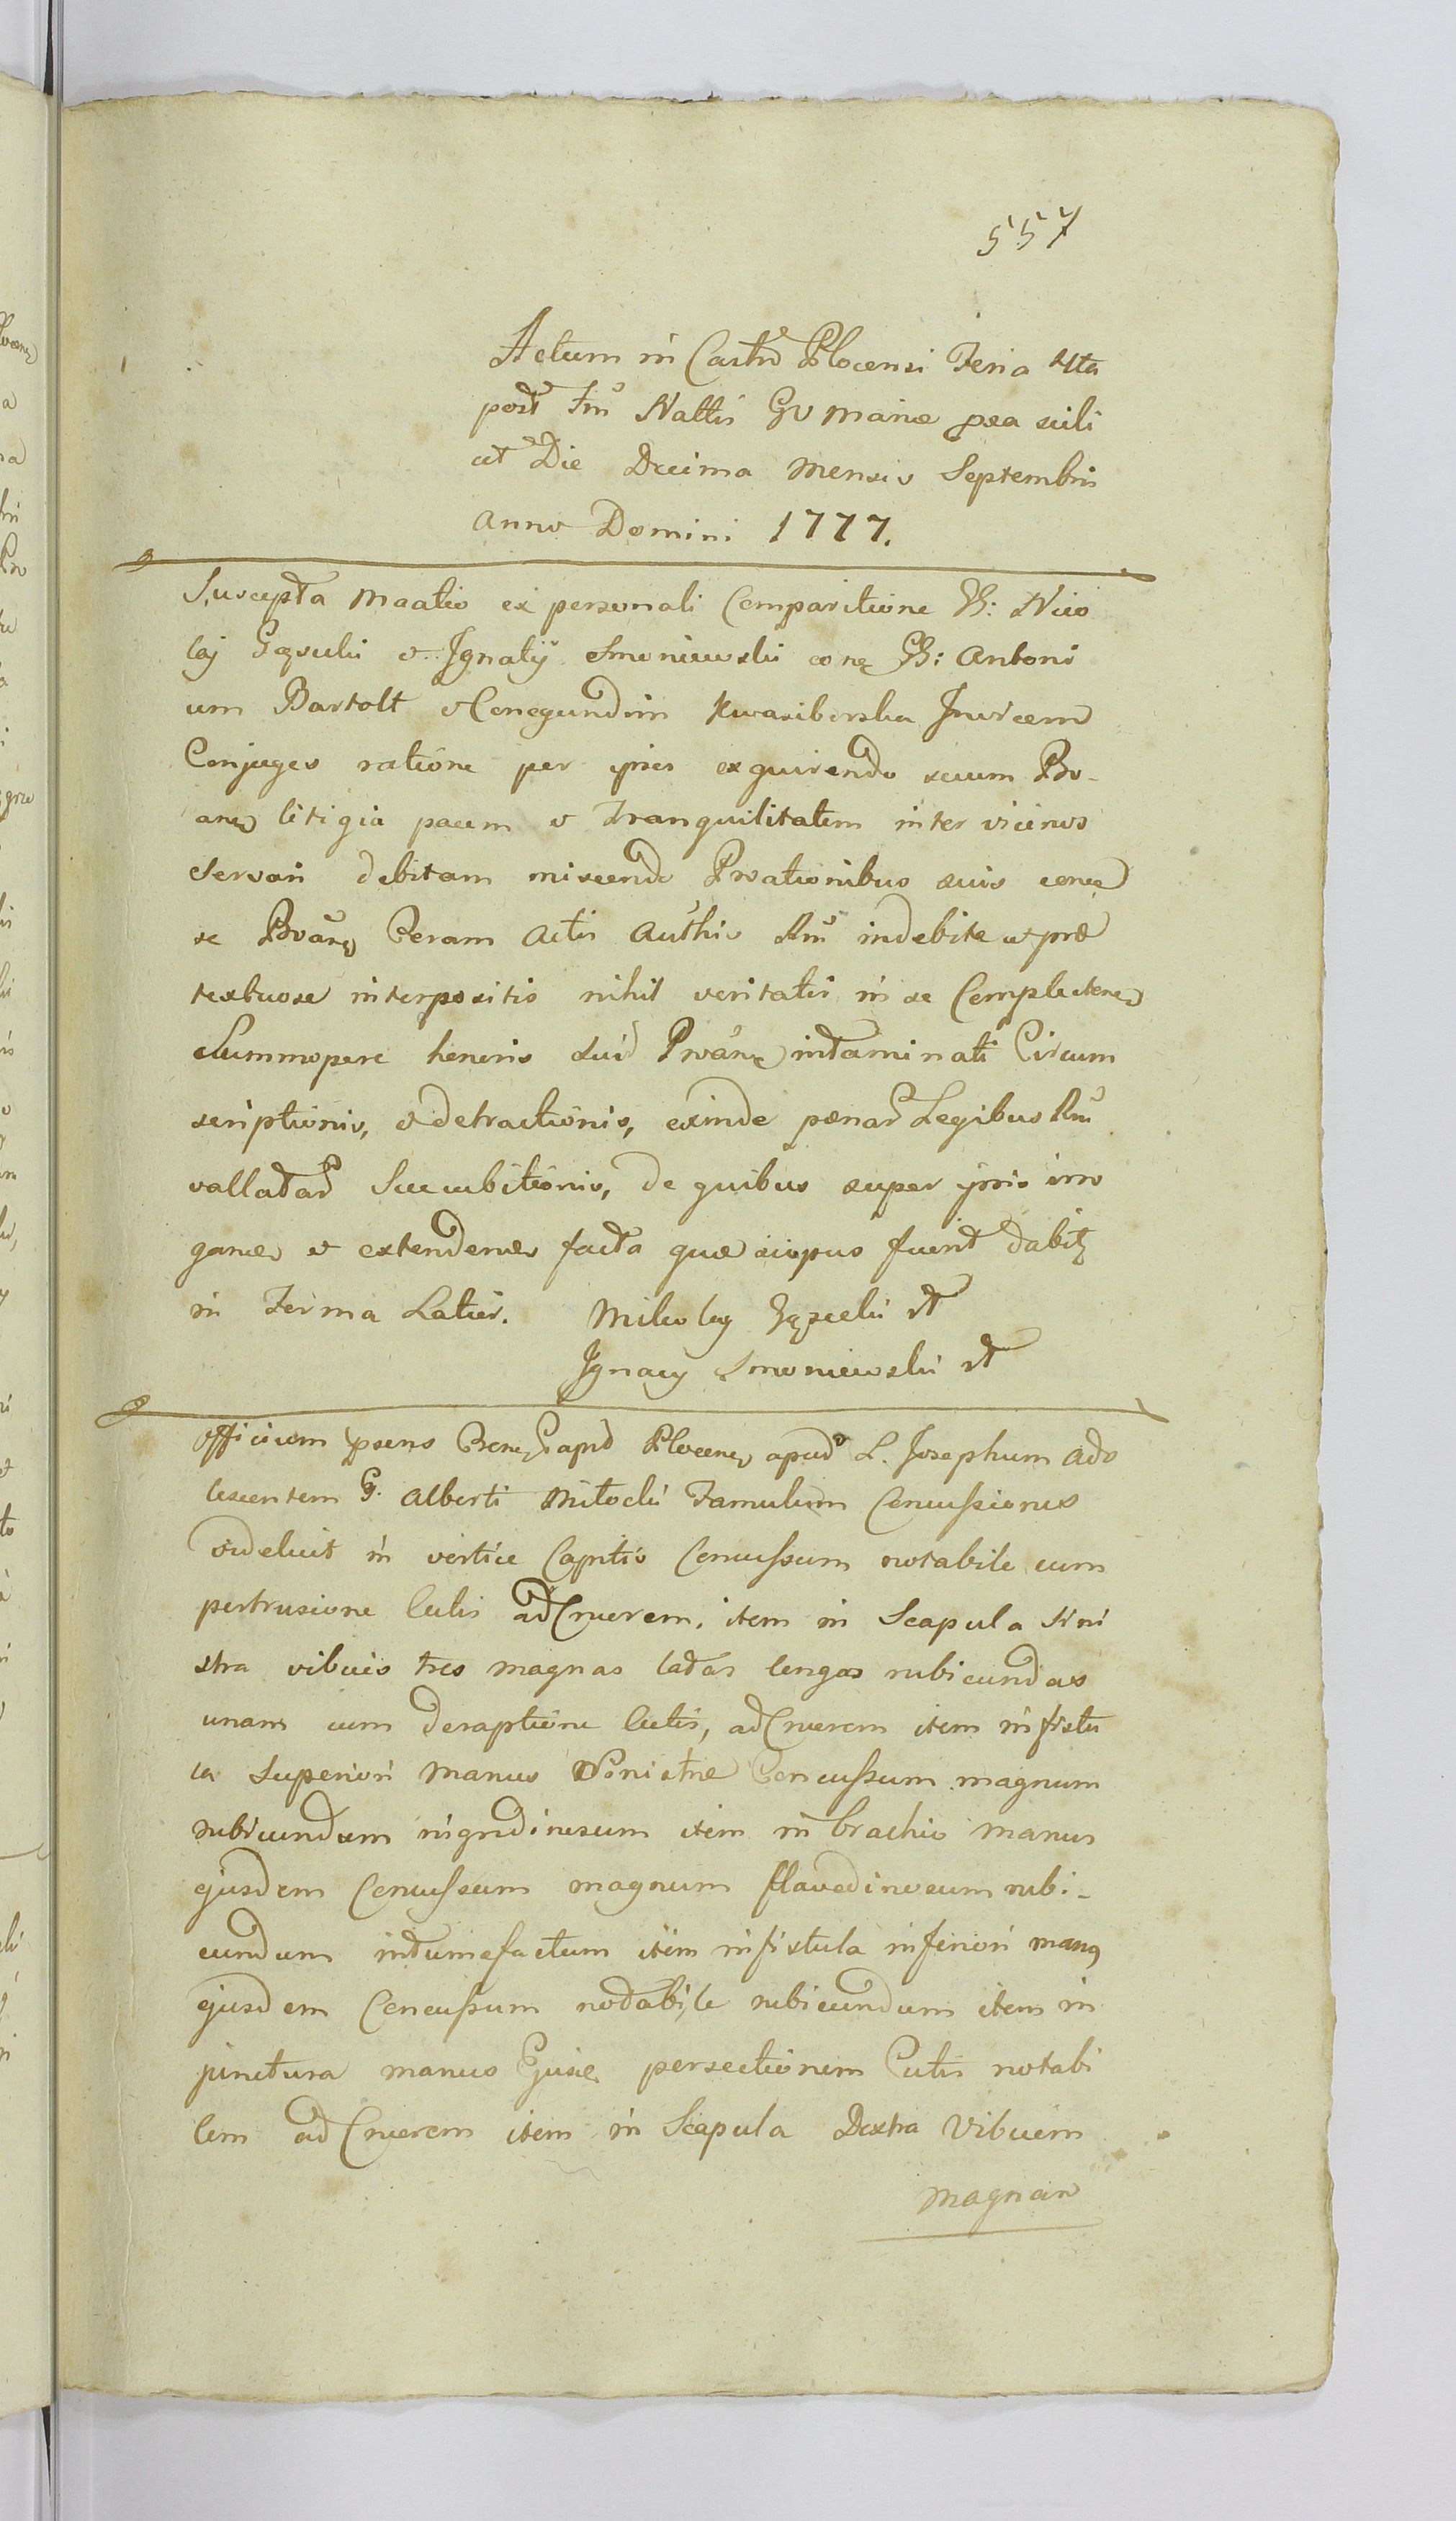 557
Actum in Castro Plocensi Feria 4ta
post Fm Nattis Gv Mariæ pxa scili
cet Die Decima Mensis Septembris
Anno Domini 1777.
Suscepta Maatio ex personali Comparitione GG: Nico
laj et Ignatij Smoniewski conę GG: Antoni
um Bartolt et Conegundim Kwasiborska Invicem
Conjuges ratione per ipsos exquirendo secum Pro-
litigia pacem et Tranquilitatem inter vicinos
Servari debitam miscendo Prvationibus suis
se Coram Actis Authis Rni indebite et præ
textuose interpositis nihil veritatis in se Complecten
Summopere honoris sui intaminati Circum
scriptionis, et detractionis, exinde pœnar Legibus Rni
vallatar Succubitionis, de quibus super ipsis irro
gan et extenden facta quæ siopus fuerit dabit
in Termino Latius. Mikołay
Ignacy Smoniewski
Officium Plocen apud L. Josephum Ado
lescentem G. Alberti Miłocki Famulum Concussiones
videlicet in vertice Capitis Concussum notabile cum
pertrusione Cutis ad Cruorem, item in Scapula sini
stra vibices tres magnas latas longas rubicundas
unam cum deraptione Cutis, ad Cruorem item in fistu
la Superiori Manus Sinistræ Concussum magnum
rubicundum nigredinosum item in brachio Manus
ejusdem Concussum magnum flavedinosum rubi-
cundum intumefactum item in fistula inferiori man9
ejusdem Concussum notabile rubicundum item in
junctura manus persectionem Cutis notabi
lem ad Cruorem item in Scapula Dextra Vibicem
magnam